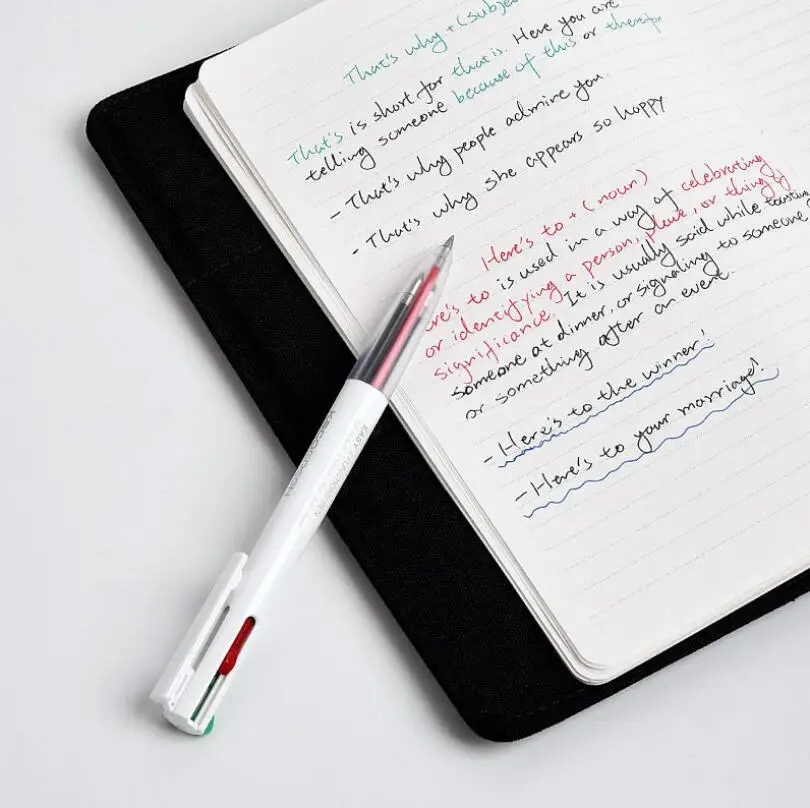 That's why + (subje
That's is short for that is. Here you are
telling someone because of this or therefor
- That's why people admire you.
- That's why she appears so happy
Here's to + (noun)
ere's to is used in a way of celebrating
or identifying a person, place, or thing of
significance. It is usually said while toasting
someone at dinner, or signaling to someone
or something after an event.
- Here's to the winner!
- Here's to your marriage!
EASY